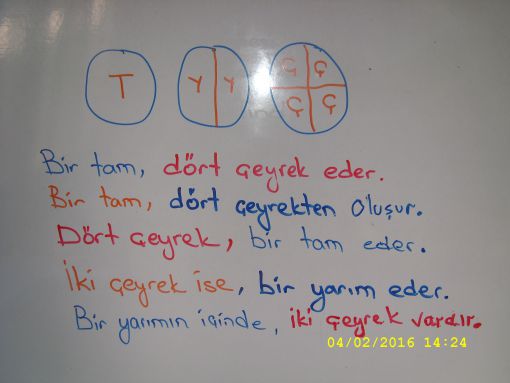 T Y Y Ç Ç
Ç Ç
Bir tam, dört çeyrek eder.
Bir tam, dört çeyrekten oluşur.
Dört çeyrek, bir tam eder.
İki çeyrek ise, bir yarım eder.
Bir yarımın içinde, iki çeyrek vardır.
04/02/2016 14:24